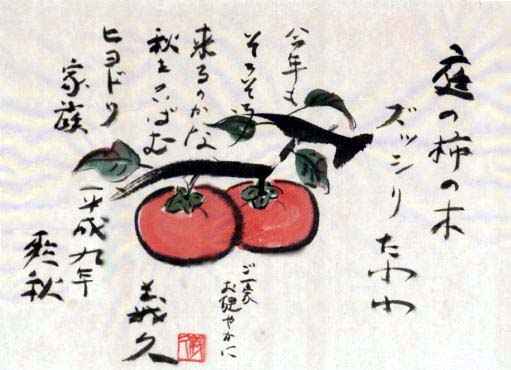 庭の柿の木
ズッシリたわわ
今年も
そろそろ
来るのかな
秋をついばむ
ヒヨドリ
家族
平成九年
秋
ご一家
お健やかに
久